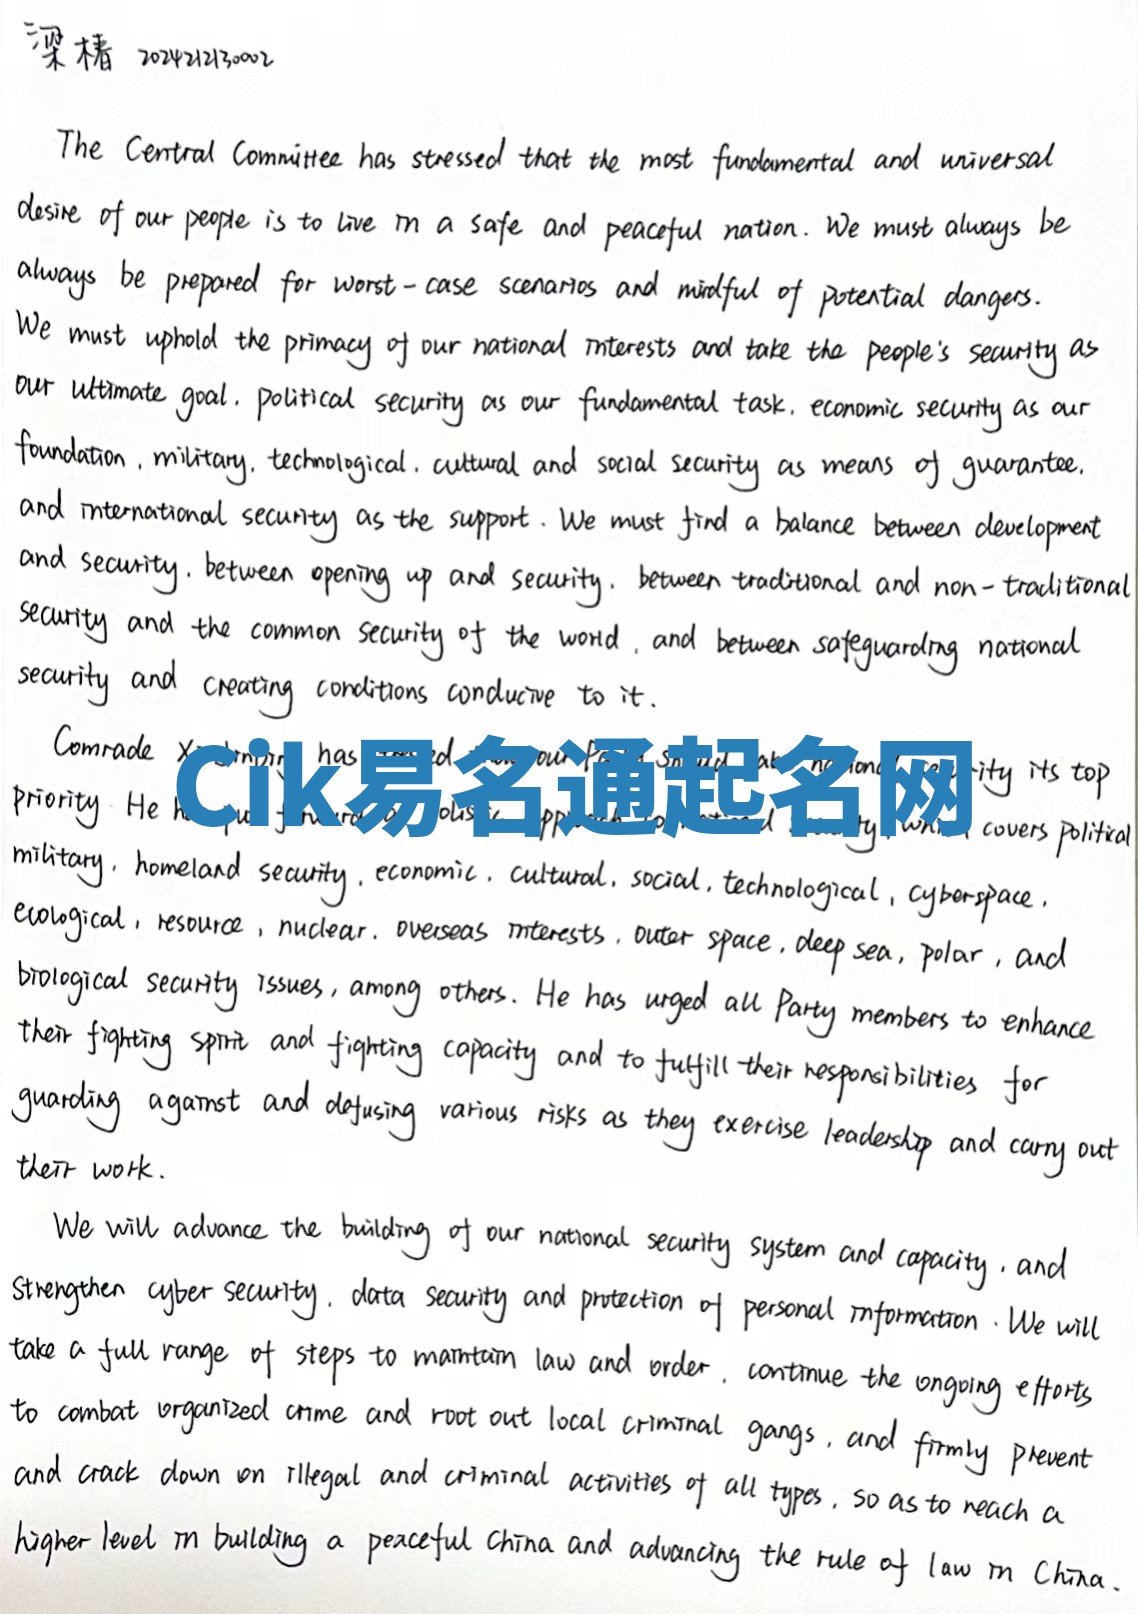 梁椿 2024212130002
The Central Committee has stressed that the most fundamental and universal
desire of our people is to live in a safe and peaceful nation. We must always be
always be prepared for worst-case scenarios and mindful of potential dangers.
We must uphold the primacy of our national interests and take the people's security as
our ultimate goal, political security as our fundamental task, economic security as our
foundation, military, technological, cultural and social security as means of guarantee,
and international security as the support. We must find a balance between development
and security, between opening up and security, between traditional and non-traditional
security and the common security of the world, and between safeguarding national
security and creating conditions conducive to it.
Comrade has our its top
Cik易名通起名网
priority. He covers political
military, homeland security, economic, cultural, social, technological, cyberspace,
ecological, resource, nuclear, overseas interests, outer space, deep sea, polar, and
biological security issues, among others. He has urged all Party members to enhance
their fighting spirit and fighting capacity and to fulfill their responsibilities for
guarding against and defusing various risks as they exercise leadership and carry out
their work.
We will advance the building of our national security system and capacity, and
strengthen cyber security, data security and protection of personal information. We will
take a full range of steps to maintain law and order, continue the ongoing efforts
to combat organized crime and root out local criminal gangs, and firmly prevent
and crack down on illegal and criminal activities of all types, so as to reach a
higher level in building a peaceful China and advancing the rule of law in China.